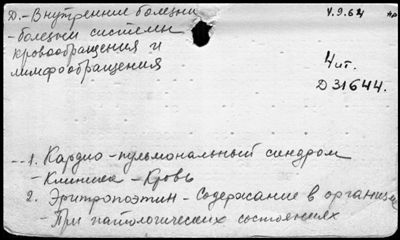 Д. - Внутренние болезни
- болезни системы
кровообращения и
лимфообращения
4.9.64
Чит.
Д 31644.
1. Кардио-пульмональный синдром
- Клиника - Кровь
2. Эритропоэтин - Содержание в организме
- При патологических состояниях